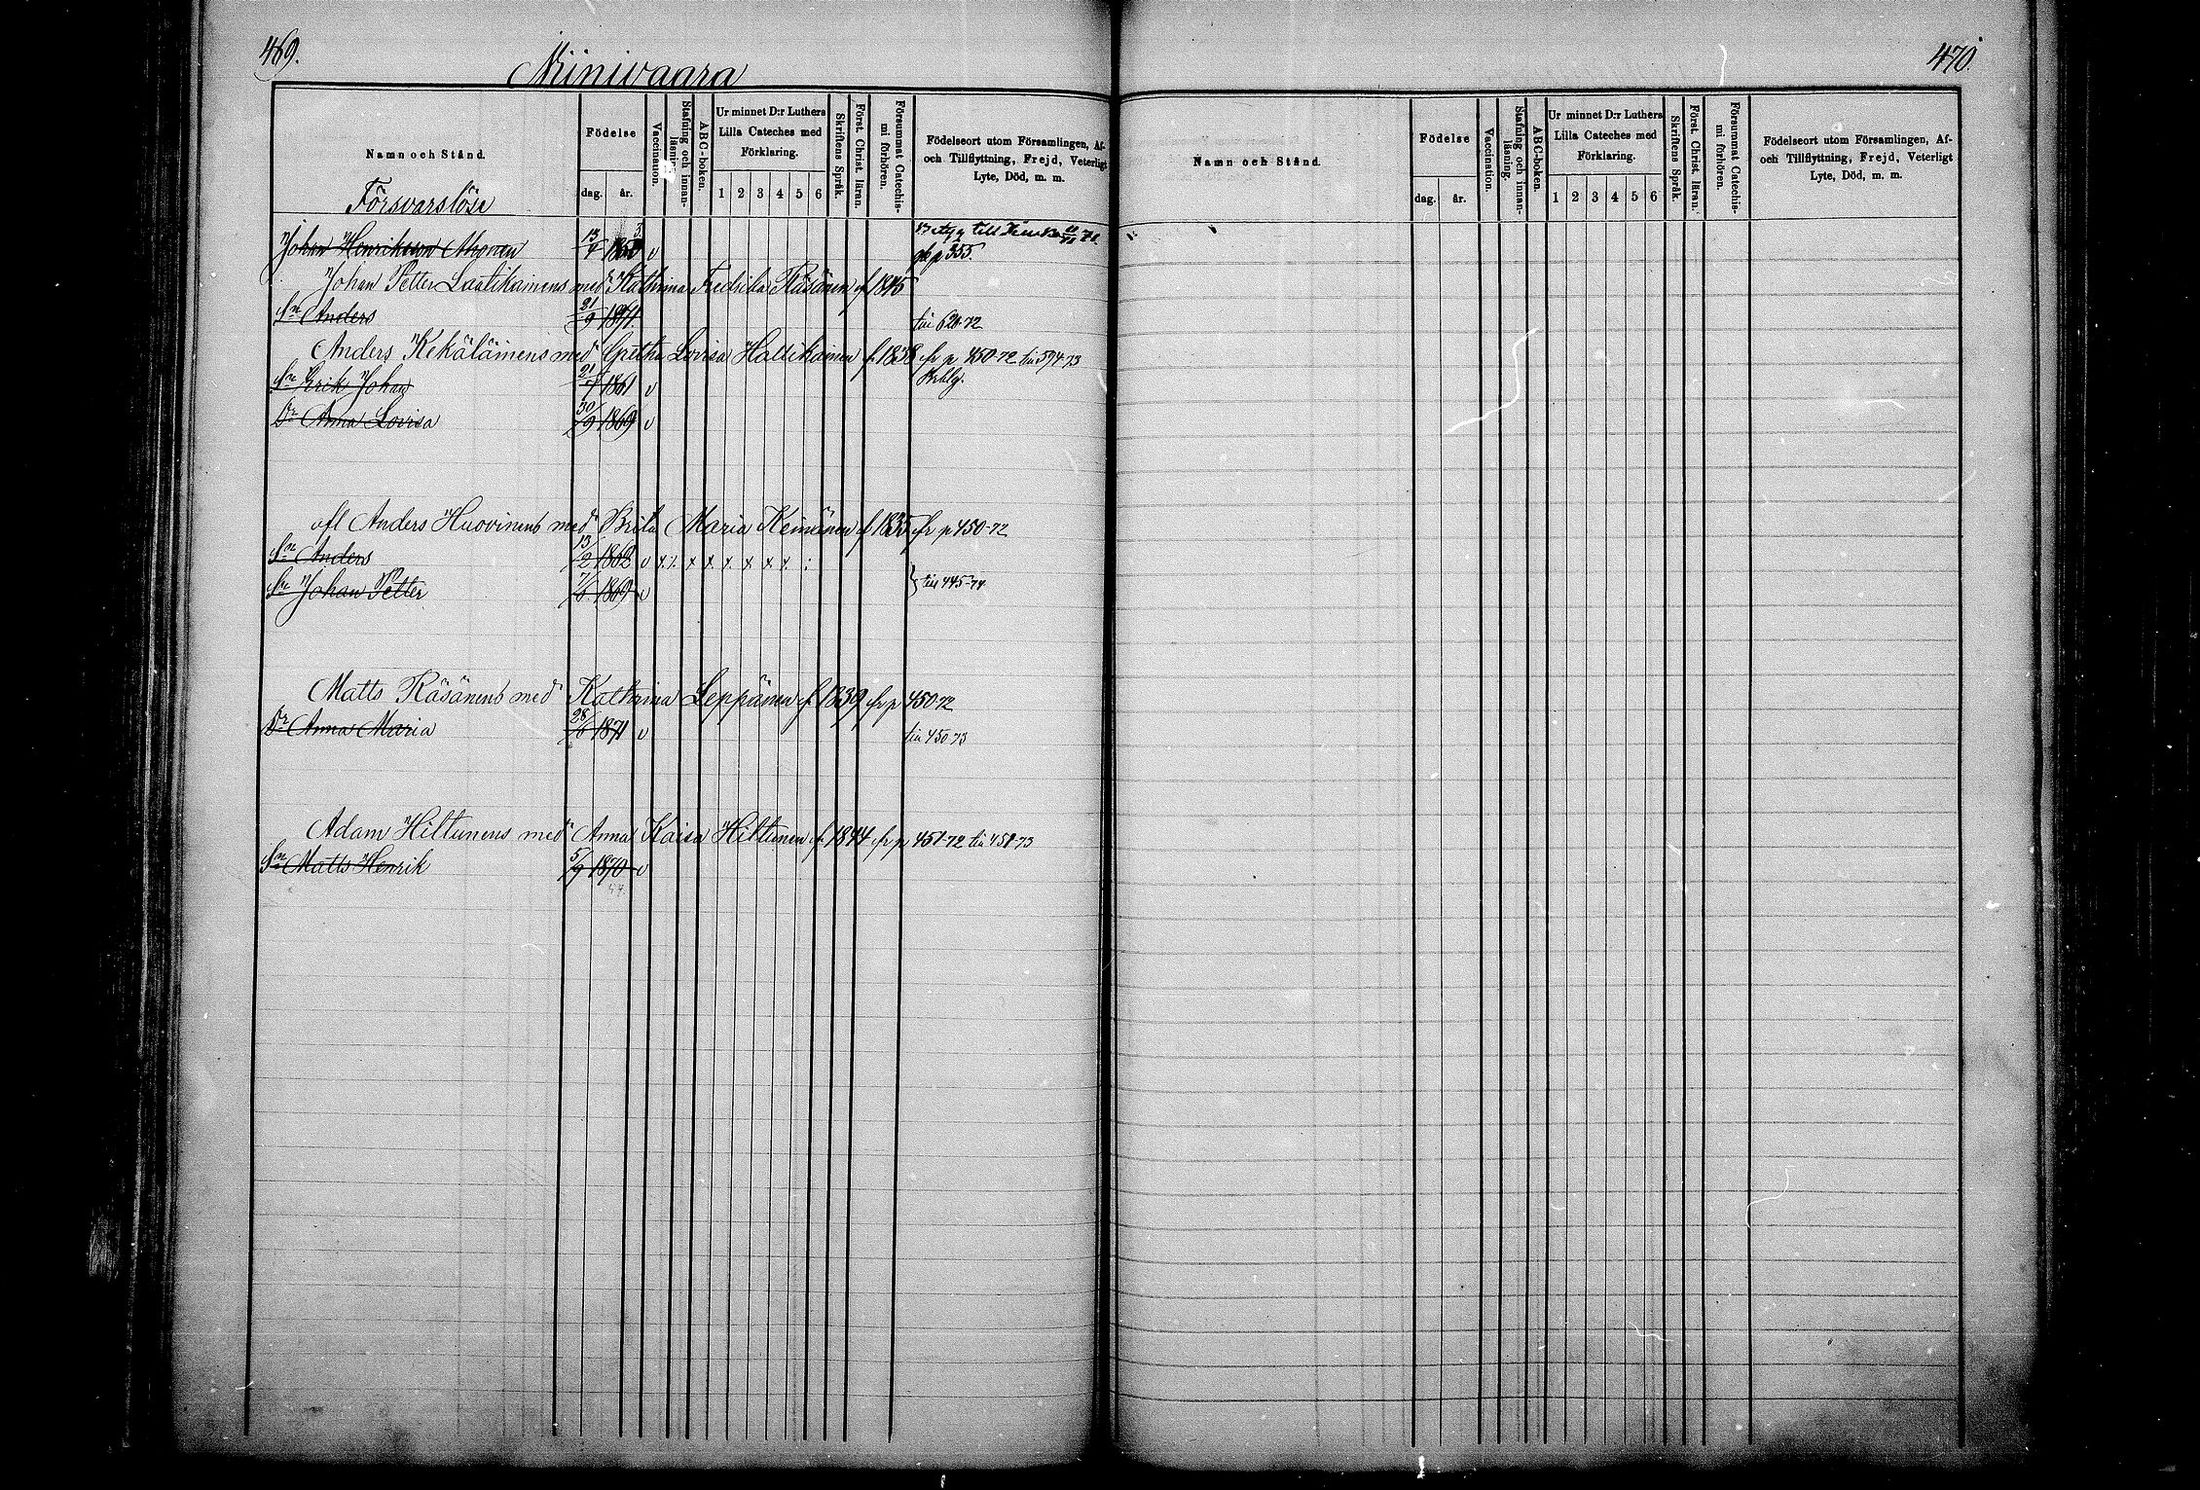 469.
Niinivaara
Namn och Stånd.
Födelse
dag. år.
Vaccination.
Stafning och innanläsning.
ABC-boken.
Ur minnet D:r Luthers Lilla Cateches med Förklaring.
1 2 3 4 5 6
Skriftens Språk.
Först. Christ. läran.
Försummat Catechismi förhören.
Födelseort utom Församlingen, Af- och Tillflyttning, Frejd, Veterligt Lyte, Död, m. m.
Försvarslöse
Johan Henriksson 13/4 v Betyg till 71.
p 355.
Johan Petter Laatikainens med Kathrina Fredrika Räsänen f 1845
Sn Anders 21/9 1871 till 620-72
Anders Kekäläinens med Gretha Lovisa Hattikainen f 1838 fr p 450-72 till 594-73
Sn Erik Johan 21/4 1861 v
Dr Anna Lovisa 30/9 1869 v
afl Anders Huovinens med Brita Maria Keinänen f 1835 fr p 450-72
Sn Anders 13/2 1862 v x x x x x x x x :
Sn Johan Petter 7/6 1869 v } till 445-74
Matts Räsänens med Kathrina Leppänen f 1839 fr p 450-72
Dr Anna Maria 28/6 1871 v till 450-73
Adam Hiltunens med Anna Kaisa Hiltunen f 1844 fr p 451-72 till 451-73
Sn Matts Henrik 5/9 1870 v
470.
Namn och Stånd.
Födelse
dag. år.
Vaccination.
Stafning och innanläsning.
ABC-boken.
Ur minnet D:r Luthers Lilla Cateches med Förklaring.
1 2 3 4 5 6
Skriftens Språk.
Först. Christ. läran.
Försummat Catechismi förhören.
Födelseort utom Församlingen, Af- och Tillflyttning, Frejd, Veterligt Lyte, Död, m. m.